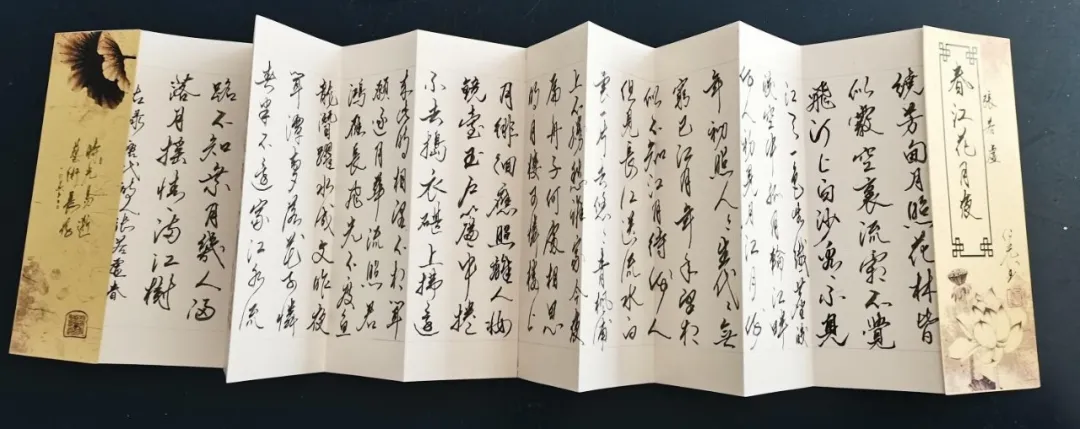 春江花月夜
張若虛
繞芳甸月照花林皆
似霰空裏流霜不覺
飛汀上白沙看不見
江天一色無纖塵皎
皎空中孤月輪江畔
何人初見月江月何
年初照人々生代々無
窮已江月年年望相
似不知江月待何人
但見長江送流水白
雲一片去悠々青楓浦
上不勝愁誰家今夜
扁舟子何處相思
明月樓可憐樓上
月徘徊應照離人妝
鏡臺玉戶簾中捲
不去搗衣砧上拂還
來此時相望不相聞
願逐月華流照君
鴻雁長飛光不度魚
龍潛躍水成文昨夜
閒潭夢落花可憐
春半不還家江水流
路不知乘月幾人歸
落月搖情滿江樹
唐代詩人張若虛春
時光易逝
藝術長存